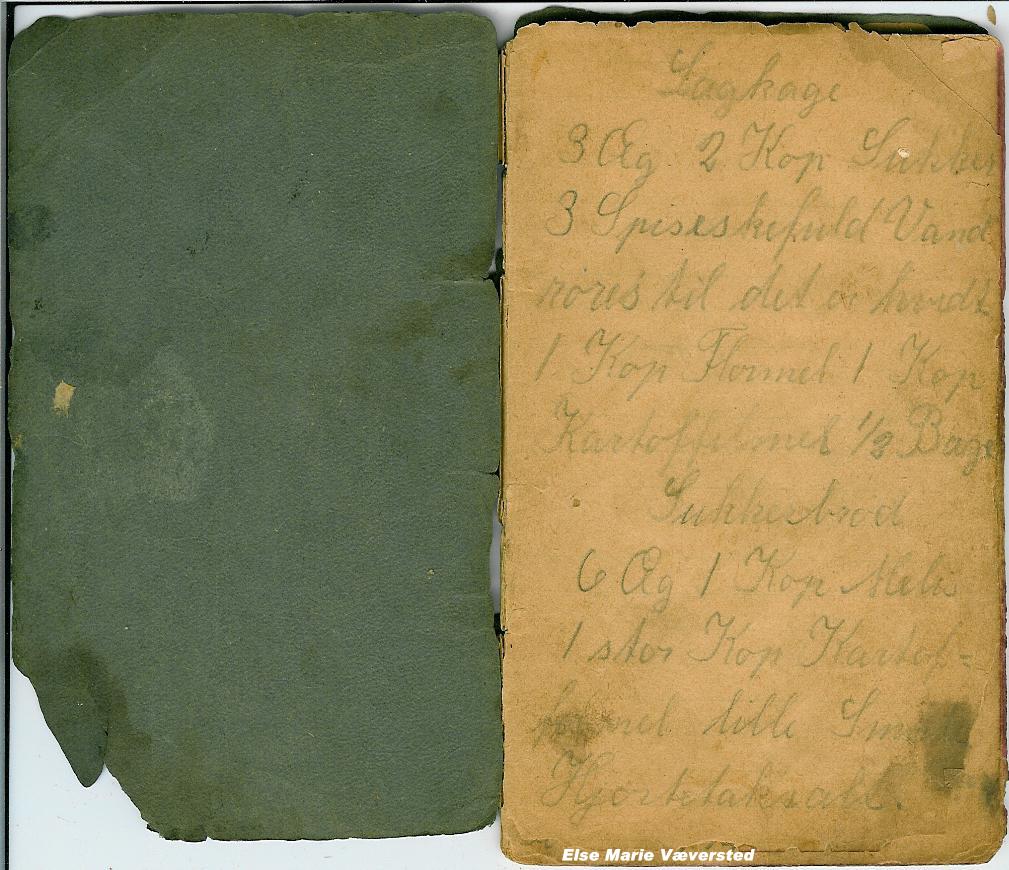 Lagkage
3 Æg 2 Kop Sukker
3 Spiseskefuld Vand
röres til det er hvidt
1 Kop Flormel 1 Kop
Kartoffelmel 1/2 Bage
Sukkerbrod
6 Æg 1 Kop Melis
1 stor Kop Kartof-
felmel lille Smule
Hjortetaksalt.
Else Marie Væversted